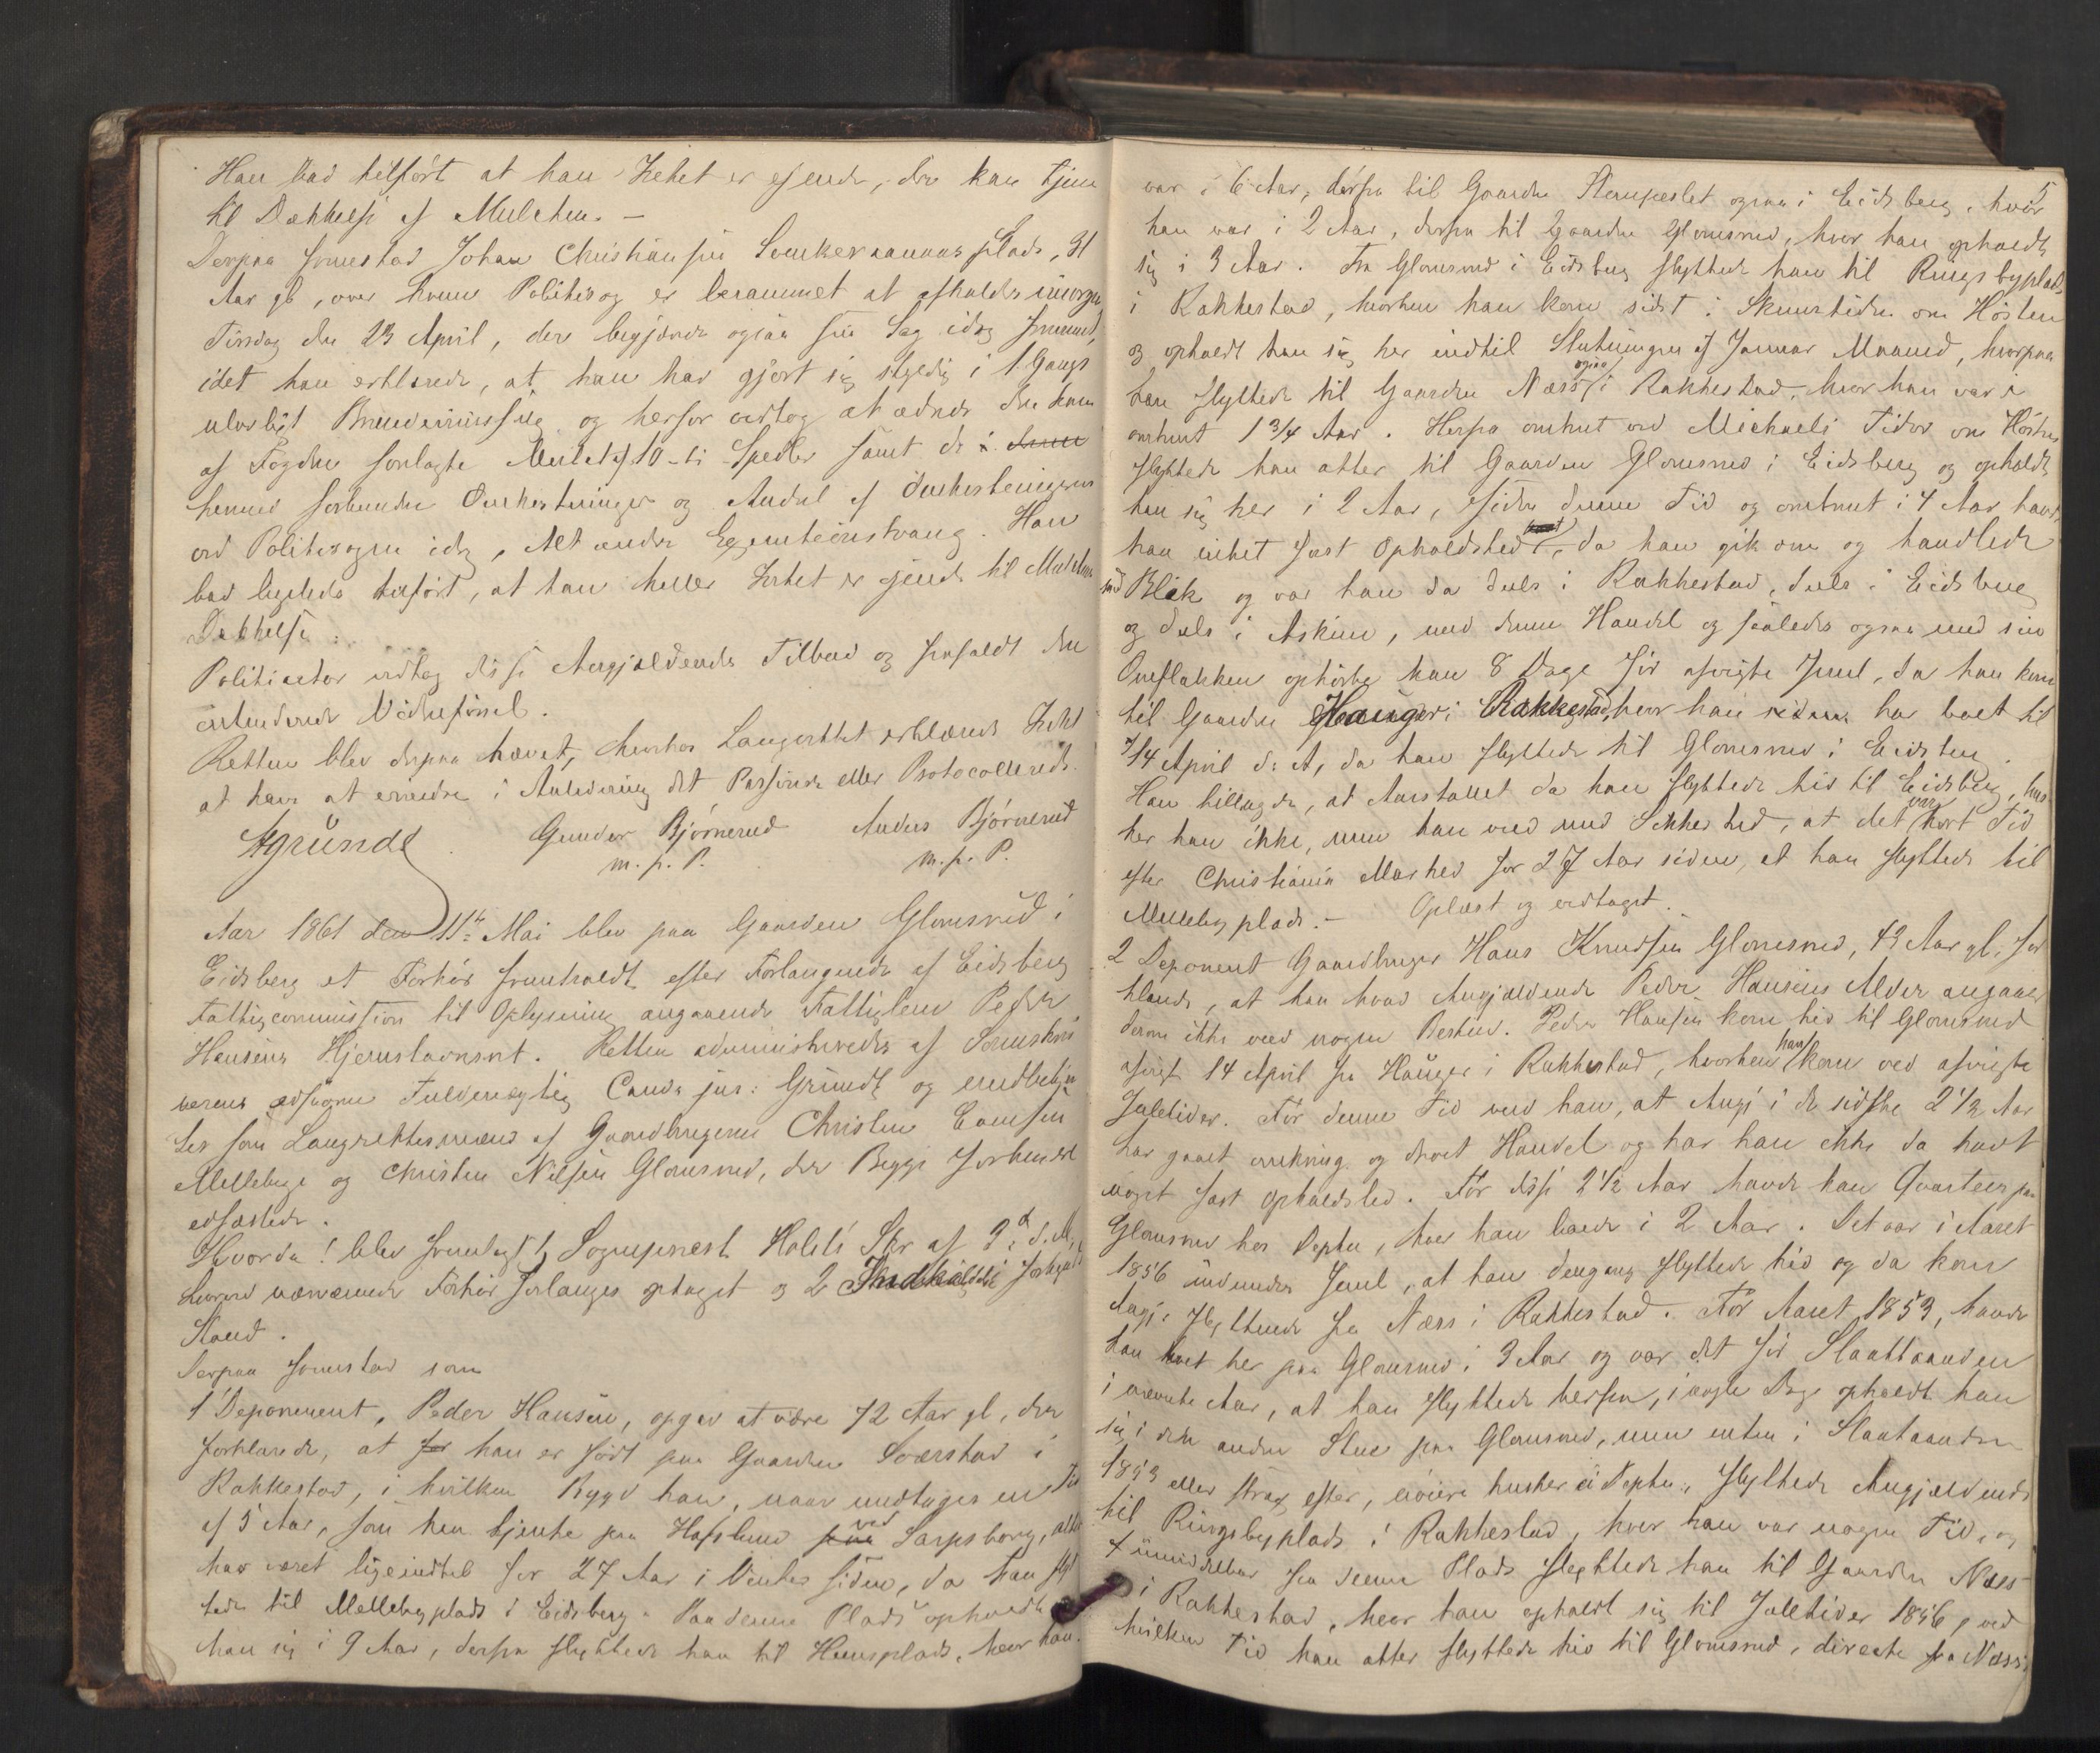 Han bad tilført at han Intet er ejende, der kan tjene
til Dækkelse af Mulcten. –
Derpaa fremstod Johan Christiansen plads, 31
Aar gl, over hvem Politisag er berammet at afholdes imorgen
Tirsdag den 23 April, der begjærede ogsaa sin Sag idag fremmet,
idet han erklærede, at han har gjort sig skyldig i 1 Gangs
ulovligt Brændevinssalg og herfor vedtog at udrede den ham
af Fogden forelagte Mulct af 10 – ti Speciedaler samt de i denne
hermed forbundne Omkostninger og Andel af Omkostningerne
ved Politisagen idag, Alt under Executionstvang. Han
bad ligeledes tilført, at han heller Intet er ejende til Mulctens
Dækkelse.
Politiactor vedtog disse Angjældendes Tilbud og frafaldt den
videre Nødvendig.
Retten blev derpaa hævet, hvorhos Laugrettet erklærede Intet
at have at erindre i Anledning det Passerede eller Protocollerede.
AGründt Gunder Bjørnerud Anders Bjørnerud
m. p. P. m. p. P.
Aar 1861 den 11te Mai blev paa Gaarden Glomsrud i
Eidsberg et Forhør fremholdt efter Forlangende af Eidsberg
Fattigcommission til Oplysning angaaende Fattiglem Peder
Hansens Hjemstavnsret. Retten administreredes af Sorenskri
verens edsvorne Fuldmægtig Cand. jur: Gründt og undertegne
des som Laugrettesmænd af Gaardbrugerne Christen
Mellebye og Christen Nilsen Glomsrud, der Begge forhen ere
edfæstede.
Hvorda! blev fremlagt Sognepræst Holsts Skr af 2d d. M.,
hvorved nærværende Forhør forlanges optaget og 2 Indkaldte
Stand.
Derpaa fremstod som
1 Deponent, Peder Hansen, opgav at være 72 Aar gl, der
forklarede, at for han er født paa Gaarden Sværstad i
Rakkestad, i hvilken Bygd han, naar undtages en Tid
af 5 Aar, som han tjente paa Hafslund paa ved Sarpsborg, altid
har været ligeindtil for 27 Aar i Vinter siden, da han flyt
tede til Mellebyplads i Eidsberg. Paa denne Plads opholdt
han sig i 9 Aar, derfra flyttede han til Heensplads, hvor han
5
var i 6 Aar, derfra til Gaarden ogsaa i Eidsberg, hvor
han var i 2 Aar, derfra til Gaarden Glomsrud, hvor han opholdt
sig i 3 Aar. Fra Glomsrud i Eidsberg flyttede han til Ringsbyplads
i Rakkestad, hvorhen han kom sidst i Skuurtiden om Høsten
og opholdt han sig her indtil Slutningen af Januar Maaned, hvorpaa
han flyttede til Gaarden Næss ogsaa i Rakkestad, hvor han var i
omtrent 1 3/4 Aar. Herfra omtrent ved Michaeli Tider om Høsten
flyttede han atter til Gaarden Glomsrud i Eidsberg og opholdt
han sig her i 2 Aar, efter denne Tid og omtrent i 4 Aar havde
han intet fast Opholdssted, da han gik om og handlede
med Blik og var han da deels i Rakkestad, deels i Eidsberg
og deels i Askim, med denne Handel og saaledes ogsaa med sin
Omflakken ophørte han 8 Dage før afvigte Juul, da han kom
til Gaarden Hauger i Rakkestad, hvor han sidenaa har boet til
14 April d. A, da han flyttede til Glomsrud i Eidsberg.
Han tillagde, at Aarstallet da han flyttede hid til Eidsberg, hus-
ker han ikke, men han veed med Sikkerhed, at det var kort Tid
efter Christiania Marked for 27 Aar siden, at han flyttede til
Mellebyplads. – Oplæst og vedtaget.
2 Deponent Gaardbruger Hans Knudsen Glomsrud, 49 Aar gl, for
klarede, at han hvad Angjældende Peder Hansens Alder angaaer
derom ikke veed nogen Besked. Peder Hansen kom hid til Glomsrud
afvigt 14 April fra Hauger i Rakkestad, hvorhen han kom ved afvigte
Juletider. Før denne Tid veed han, at Angj. i de sidste 2 1/2 Aar
har gaaet omkring og drevet Handel og har han ikke da havt
noget fast Opholdssted. Før disse 2 1/2 Aar havde han Qvarteer paa
Glomsrud hos Deptn, hvor han boede i 2 Aar. Det var i Aaret
1856 indunder Juul, at han dengang flyttede hid og da kom
Angj. flyttende fra Næss i Rakkestad. Før Aaret 1853, havde
han boet her paa Glomsrud i 3 Aar og var det før Slaattaanden
i nævnte Aar, at han flyttede herfra, i nogle Dage opholdt han
sig i den anden Stue paa Glomsrud, men enten i Slaataanden
1853 eller strax efter, nøiere husker ei Deptn, flyttede Angjældende
til Ringsbyplads i Rakkestad, hvor han var nogen Tid, og
umiddelbar fra denne Plads flyttede han til Gaarden Næss
i Rakkestad, hvor han opholdt sig til Juletider 1856, ved
hvilken Tid han atter flyttede hid til Glomsrud, directe fra Næss i